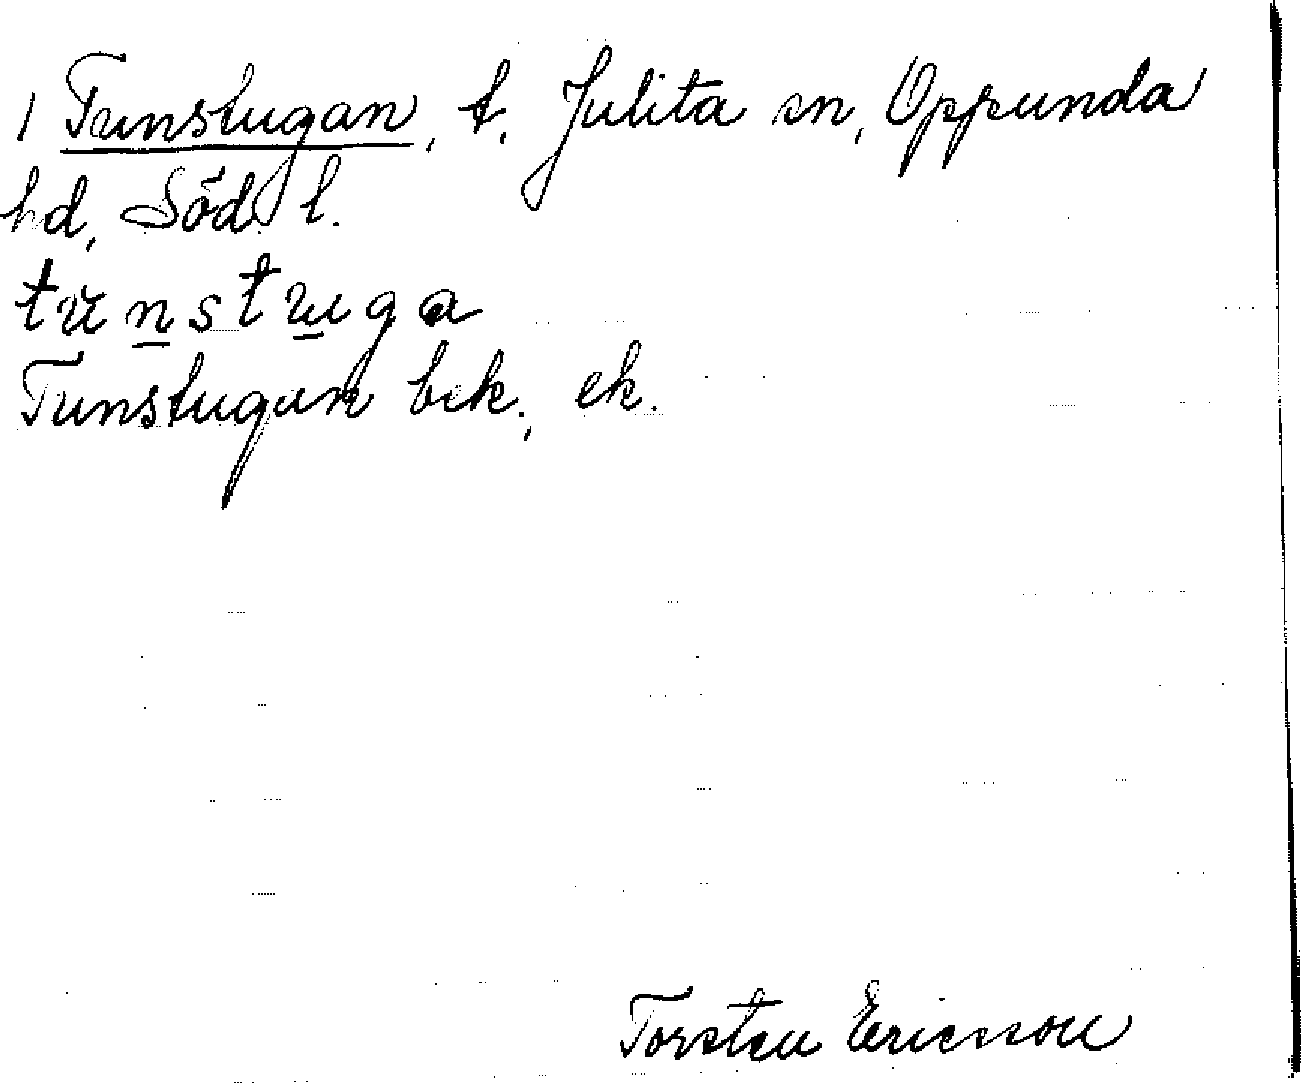 1 Tunstugan, t. Julita sn, Oppunda
hd, Söd. l.
tu̇nstuga
Tunstugan bek., ek.
Torsten Ericsson